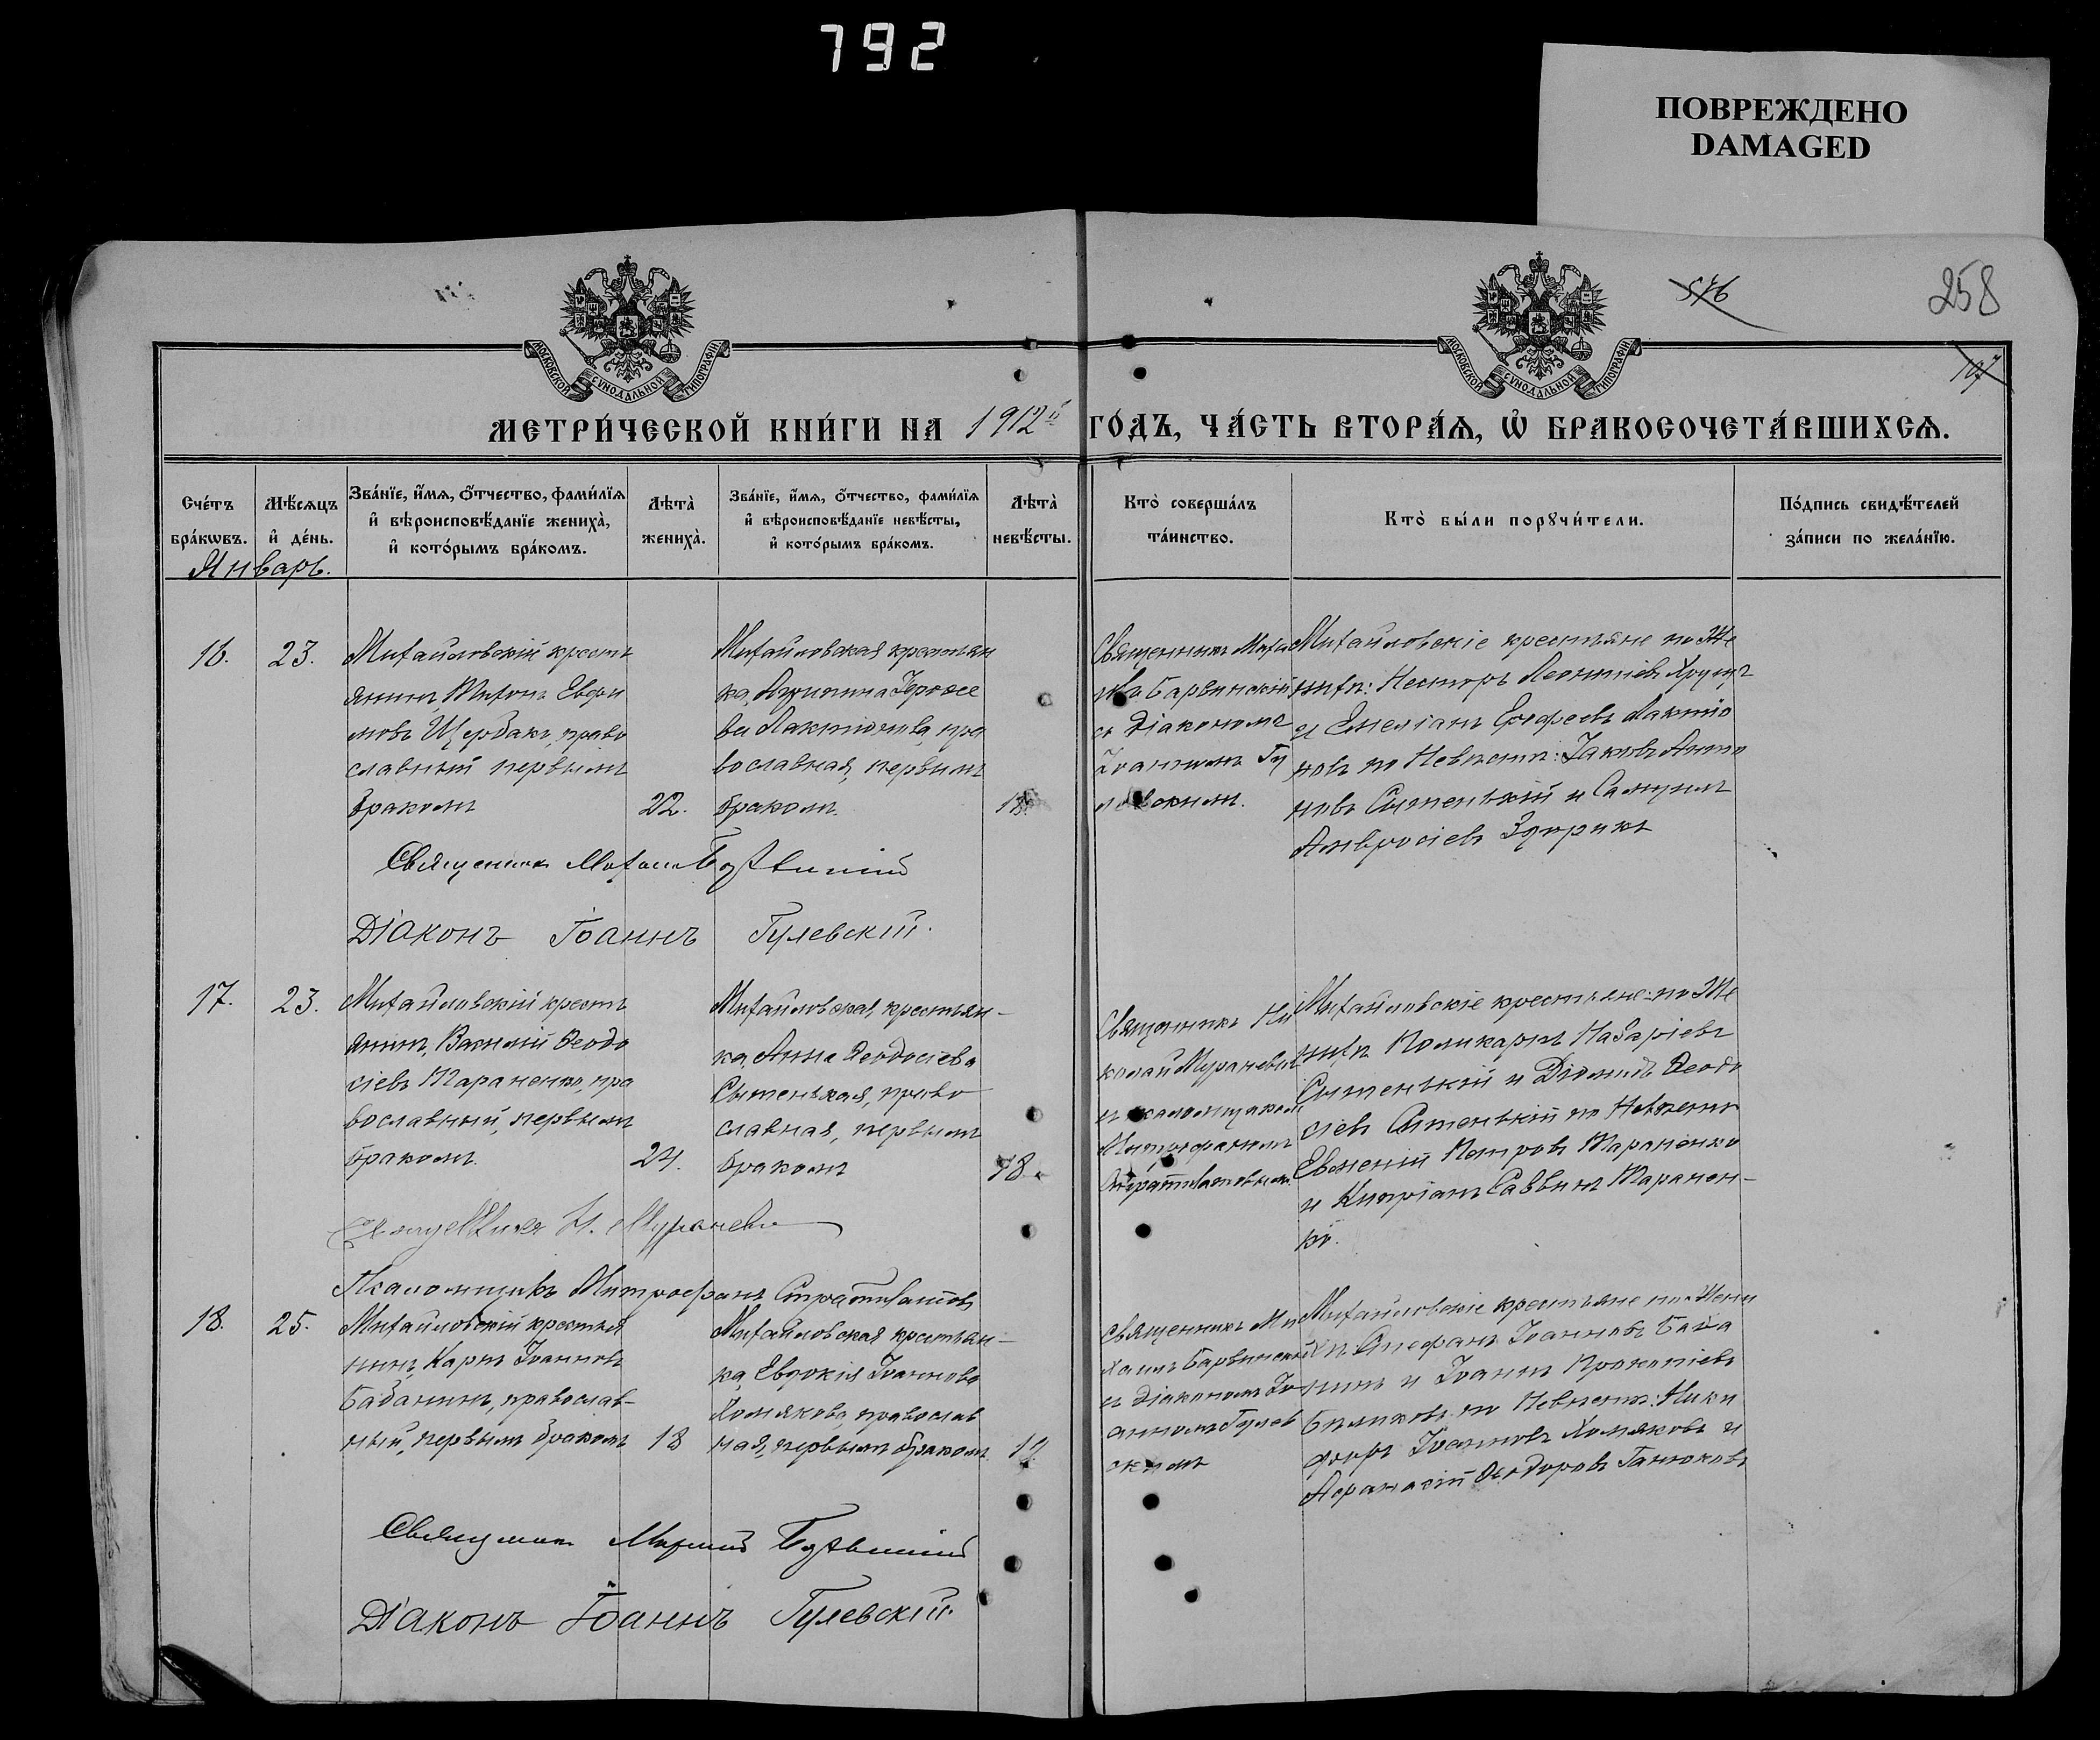 792
ПОВРЕЖДЕНО
DAMAGED
576
258
107
МОСКОВСКОЙ СУНОДАЛЬНОЙ ТИПОГРАФІИ
МОСКОВСКОЙ СУНОДАЛЬНОЙ ТИПОГРАФІИ
МЕТРИ́ЧЕСКОЙ КНИ́ГИ НА 1912й ГО́ДЪ, ЧА́СТЬ ВТОРА́Ѧ, Ѡ҆ БРАКОСОЧЕТА́ВШИХСѦ.
Сче́тъ
бра́кѡвъ.
Мѣ́сѧцъ
и҆ де́нь.
Зва́нїе, и҆́мѧ, ѻ҆́тчество, фами́лїѧ
и҆ вѣроисповѣ́данїе жениха̀,
и҆ кото́рымъ бра́комъ.
Лѣта̀
жениха̀.
Зва́нїе, и҆́мѧ, ѻ҆́тчество, фами́лїѧ
и҆ вѣроисповѣ́данїе невѣ́сты,
и҆ кото́рымъ бра́комъ.
Лѣта̀
невѣ́сты.
Кто̀ соверша́лъ
та́инство.
Кто̀ бы́ли порꙋчи́тели.
По́дпись свидѣ́телей
за́писи по жела́нїю.
Январь.
16.
23.
Михайловскій кресть
янинъ, Тихонъ Евфи
мовъ Щербакъ, право
славный первымъ
бракомъ
22.
Михайловская крестьян
ка,
ва Лактіонова, пра
вославная, первымъ
бракомъ.
18.
Священникъ Миха
илъ Барвинскій
съ Діакономъ
Іоанномъ Гу
левскимъ.
Михайловскіе крестьяне по Же
нихѣ: Несторъ Леонтіевъ Хрущъ
и Емеліанъ Ерофеевъ Лактіо
новъ по Невѣстѣ: Іаковъ Анто
новъ Сытенькій и Самуилъ
Амвросіевъ
Священникъ Михаилъ Барвинскій
Діаконъ Іоаннъ Гулевскій.
17.
23.
Михайловскій кресть
янинъ, Василій Ѳеодо
сіевъ Тараненко, пра
вославный, первымъ
бракомъ.
24.
Михайловская, крестьян-
ка, Анна Ѳеодосіева
Сытенькая, право
славная, первымъ
бракомъ
18.
Священникъ Ни
колай Мураневичъ
и псаломщикомъ
Митрофаномъ
Стратилатовымъ.
Михайловскіе крестьяне: по Же
нихѣ Поликарпъ Назаріевъ
Сытенькій и Діомидъ Ѳеодо
сіевъ Сытенькій по Невѣстѣ
Евменій Петровъ Тараненко
и Кипріанъ Саввинъ Таранен-
ко.
Священникъ Н. Мураневи
Псаломщикъ Митрофанъ Стратилатовъ
18.
25.
Михайловскій крестья
нинъ, Карпъ Іоанновъ
Бабанинъ, православ-
ный, первымъ бракомъ
18
Михайловская крестьян-
ка, Евдокія Іоаннова
Хомякова, православ
ная, первымъ бракомъ
19
Священникъ Ми
хаилъ Барвинскій
съ Діакономъ Іо
анномъ Гулев
скимъ
Михайловскіе крестьяне по Жени
хѣ: Стефанъ Іоанновъ Баба
нинъ и Іоаннъ Прокопіевъ
Бѣликовъ, по Невѣстѣ: Ники
форъ Іоанновъ Хомяковъ и
Аѳанасій Ѳеодоровъ Ганюковъ
Священникъ Михаилъ Барвинскій
Діаконъ Іоаннъ Гулевскій.